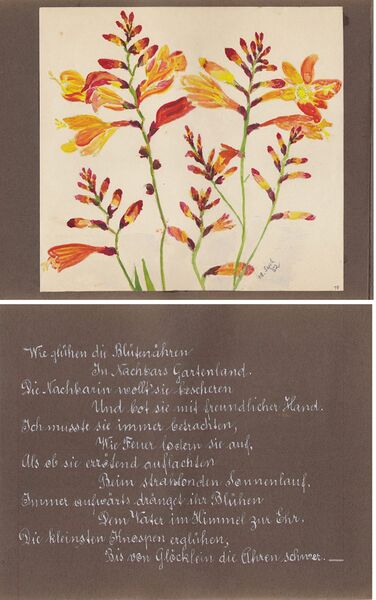 18. Sept. 52
78
Wie glühen die Blütenähren
In Nachbars Gartenland.
Die Nachbarin wollt' sie bescheren
Und bot sie mit freundlicher Hand.
Ich musste sie immer betrachten,
Wie Feuer lodern sie auf,
Als ob sie errötend auflachten
Beim strahlenden Sonnenlauf.
Immer aufwärts dränget ihr Blühen
Dem Vater im Himmel zur Ehr.
Die kleinsten Knospen erglühen,
Bis von Glöcklein die Ähren schwer. __